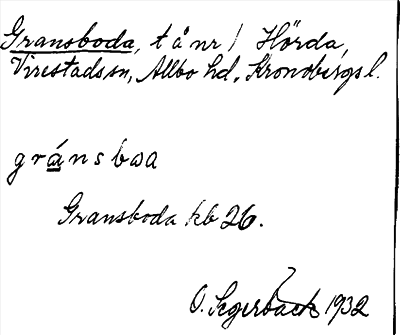 Gransboda, t å nr 1 Hörda,
Virestads sn, Allbo hd, Kronobergs l.
gránsbωa
Gransboda kb 26.
O. Segerbäck 1932